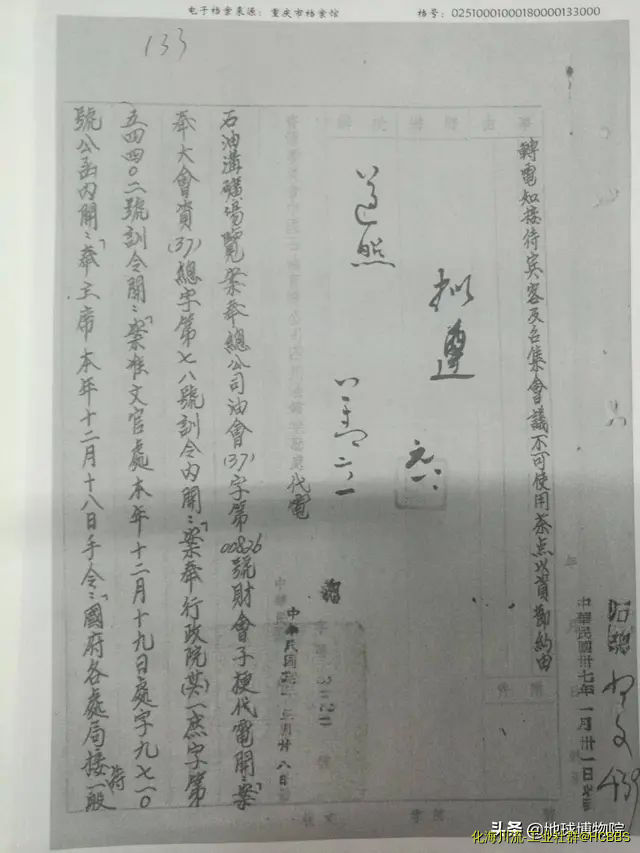 电子档案来源：重庆市档案馆
档号：02510001000180000133000
133
中華民國卅七年一月卅一日
轉電知接待賓客及召集會議不可使用茶点以資節約由
擬遵
遵照
代電
中華民國 三月廿八日
石油溝礦場覽案奉總公司油會(37)字第00826號財會子梗代電開：「案
奉大會資(37)總字第七八號訓令內開：「案奉行政院(卅六)一庶字第
五四四〇二號訓令開：「案准文官處本年十二月十九日處字九七一〇
號公函內開：「奉主席本年十二月十八日手令：「國府各處局接待一般
头条 @地球博物院
化海川流-工业社群@HCBBS